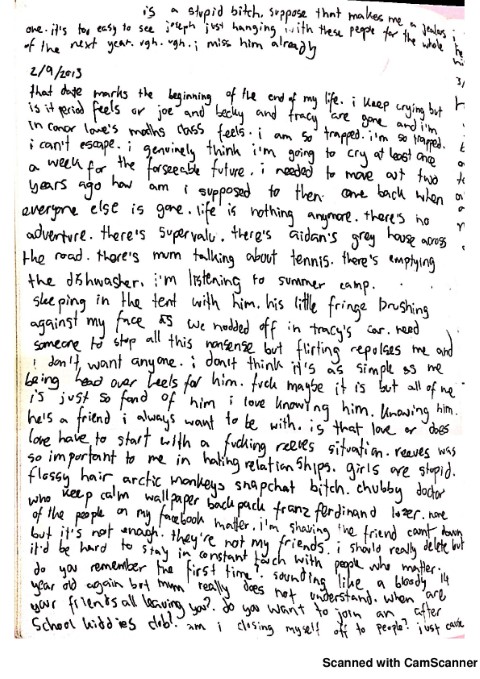 is a stupid bitch. suppose that makes me a jealous
one. it's too easy to see joseph just hanging with these people for the whole
of the next year. ugh. ugh. i miss him already
2/9/2013
that date marks the beginning of the end of my life. i keep crying but
is it period feels or joe and becky and tracy are gone and i'm
in conor love's maths class feels. i am so trapped. i'm so trapped.
i can't escape. i genuinely think i'm going to cry at least one
a week for the forseeable future. i needed to move out two
years ago how am i supposed to then come back when
everyone else is gone. life is nothing anymore. there's no
adventure. there's supervalu. there's aidan's grey house across
the road. there's mum talking about tennis. there's emptying
the dishwasher. i'm listening to summer camp.
sleeping in the tent with him. his little fringe brushing
against my face as we nodded off in tracy's car. need
someone to stop all this nonsense but flirting repulses me and
i don't want anyone. i don't think it's as simple as me
being head over heels for him. fuck maybe it is but all of me
is just so fond of him i love knowing him. knowing him.
he's a friend i always want to be with. is that love or does
love have to start with a fucking reeves situation. reeves was
so important to me in hating relationships. girls are stupid.
flossy hair arctic monkeys snapchat bitch. chubby doctor
who keep calm wallpaper backpack franz ferdinand loser. none
of the people on my facebook matter. i'm shaving the friend count down
but it's not enough. they're not my friends. i should really delete but
it'd be hard to stay in constant touch with people who matter.
do you remember the first time? sounding like a bloody 14
year old again but mum really does not understand. when are
your friends all leaving you? do you want to join an after
school kiddies club? am i closing myself off to people? just cause
Scanned with CamScanner